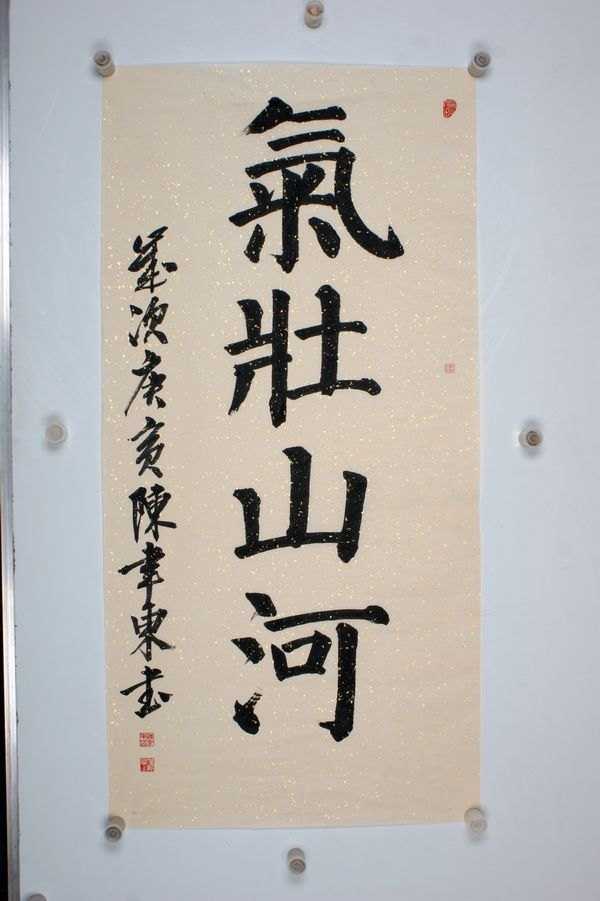 氣壯山河
歲次庚寅陳韋東書